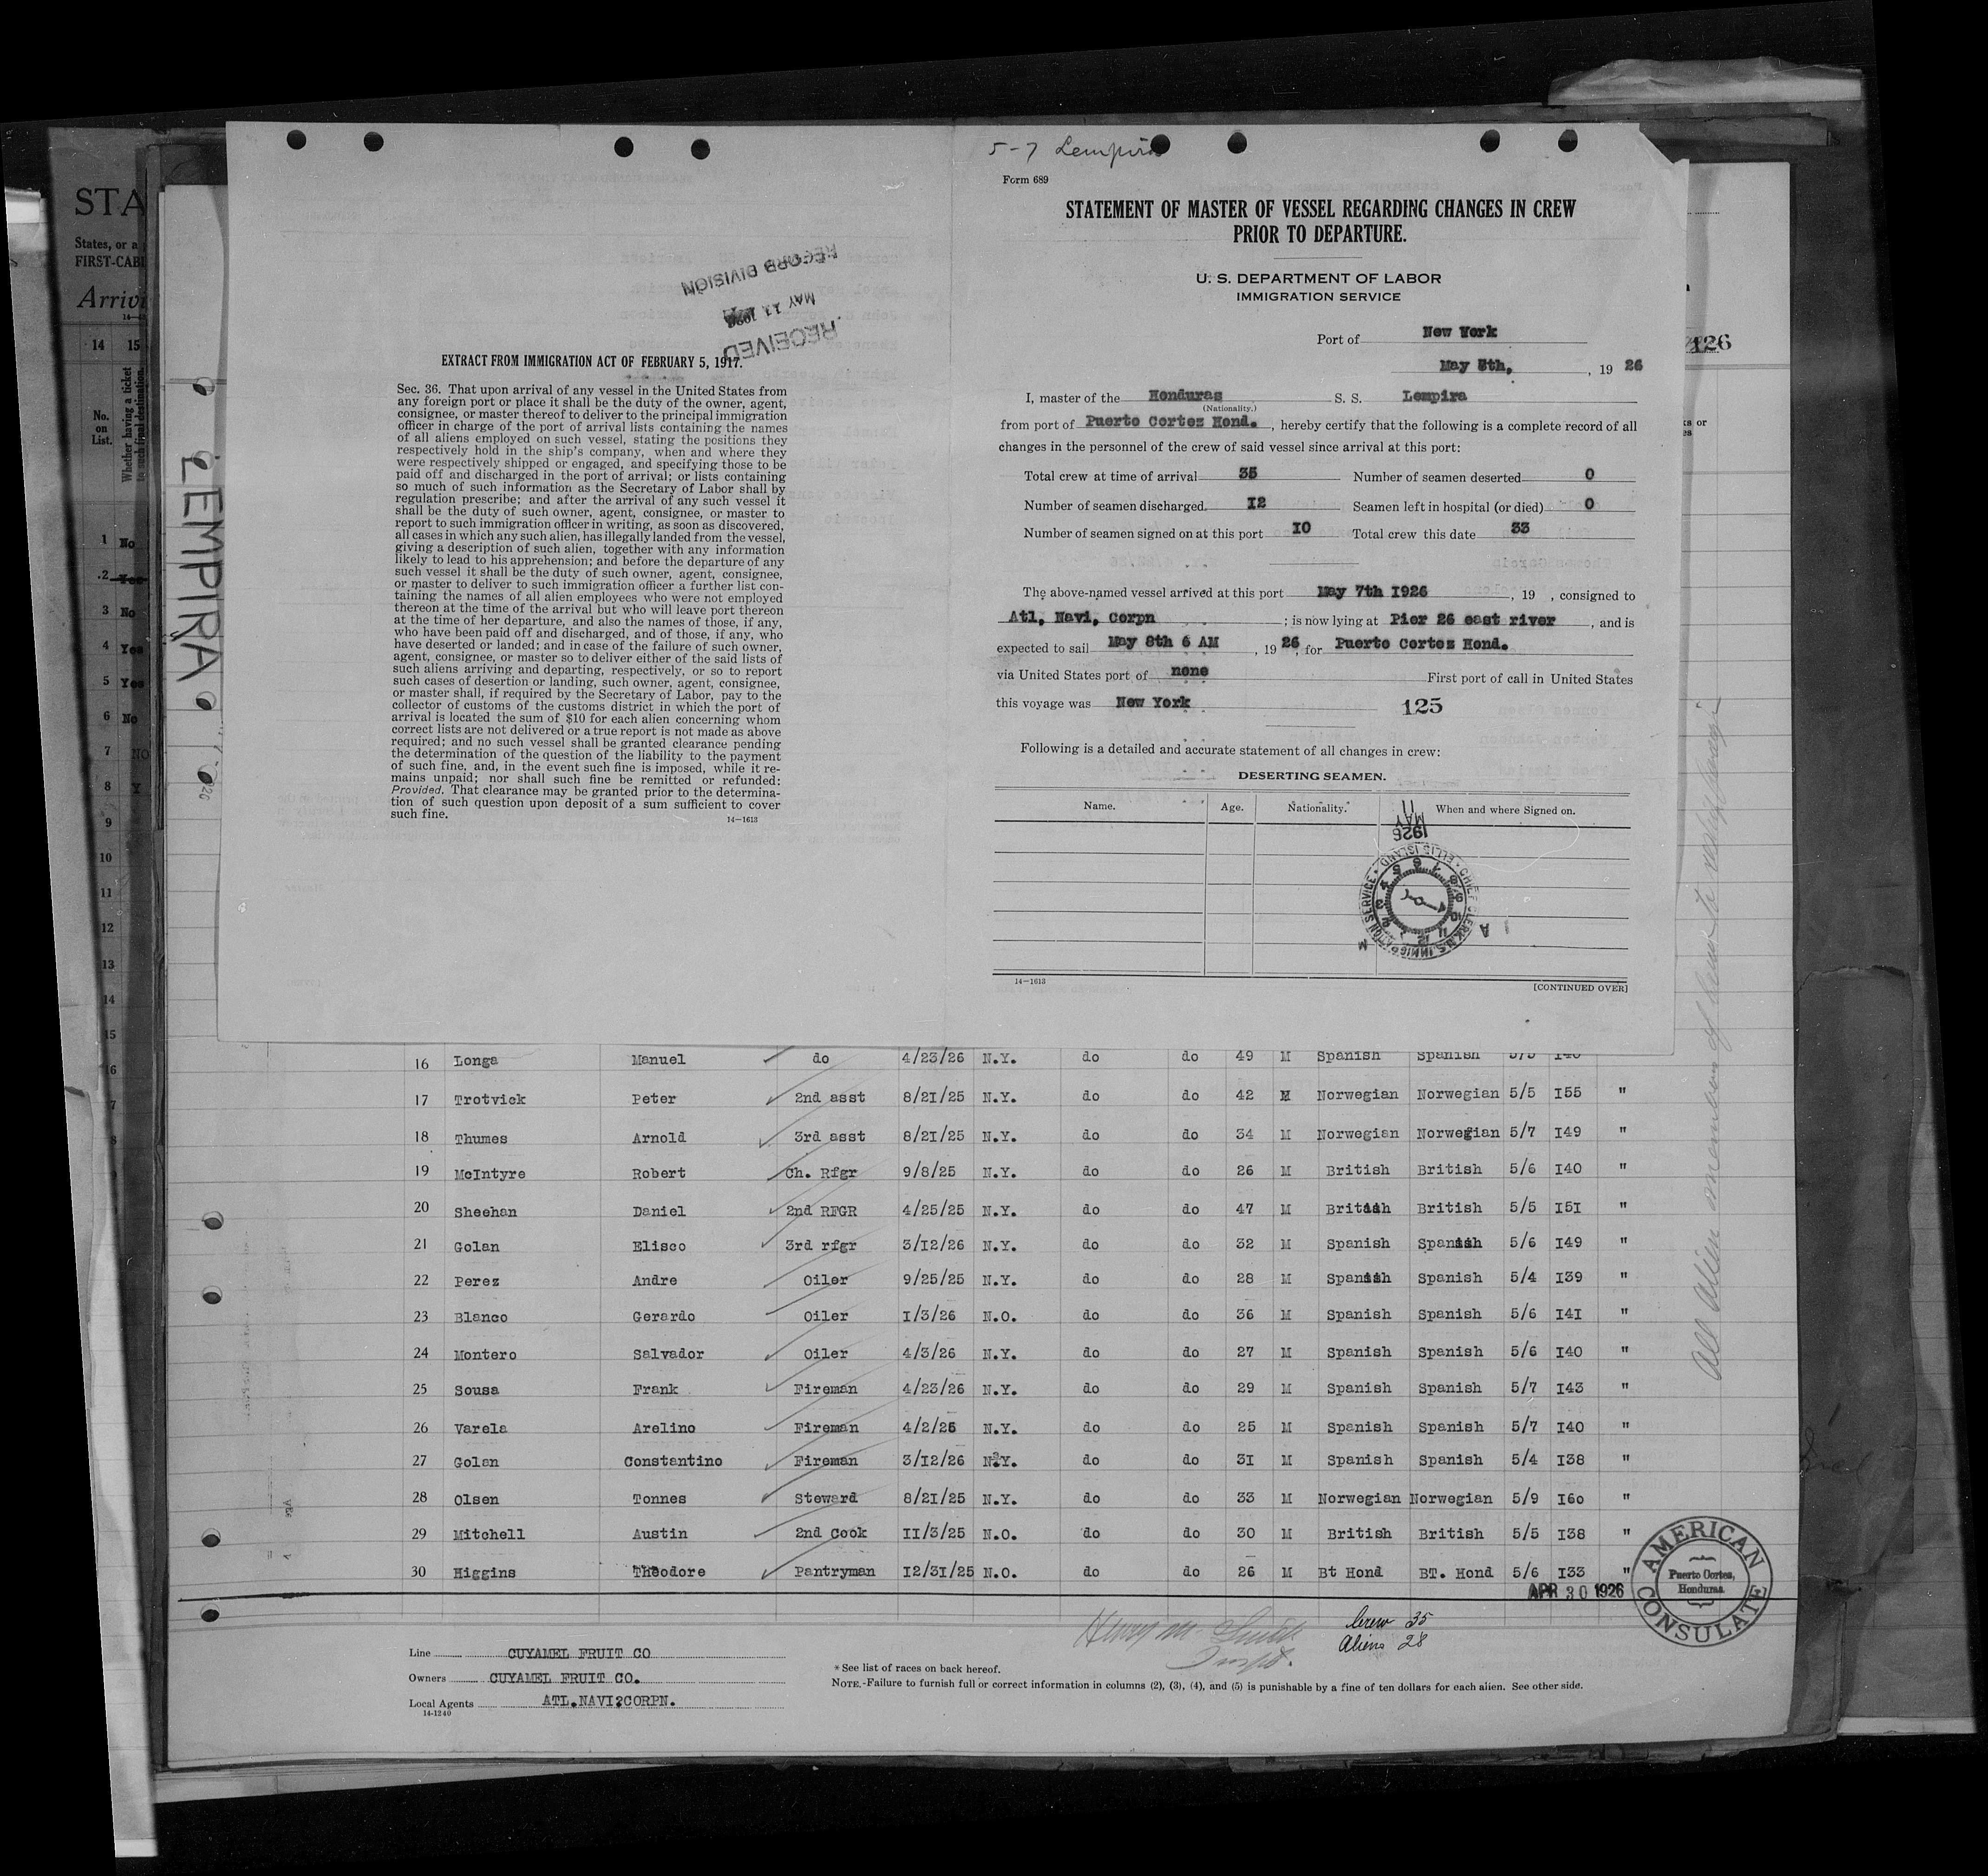 5-7 Lempira
Form 689
STATEMENT OF MASTER OF VESSEL REGARDING CHANGES IN CREW
PRIOR TO DEPARTURE.
U. S. DEPARTMENT OF LABOR
IMMIGRATION SERVICE
Port of New York
May 8th, , 19 26
I, master of the Honduras S. S. Lempira
(Nationality.)
from port of Puerto Cortes Hond. , hereby certify that the following is a complete record of all
changes in the personnel of the crew of said vessel since arrival at this port:
Total crew at time of arrival 35 Number of seamen deserted 0
Number of seamen discharged 12 Seamen left in hospital (or died) 0
Number of seamen signed on at this port 10 Total crew this date 33
The above-named vessel arrived at this port May 7th 1926 , 19 , consigned to
Atl, Navi, Corpn ; is now lying at Pier 26 east river , and is
expected to sail May 8th 6 AM , 19 26, for Puerto Cortes Hond.
via United States port of none First port of call in United States
this voyage was New York 125
Following is a detailed and accurate statement of all changes in crew:
DESERTING SEAMEN.
Name. Age. Nationality. When and where Signed on.
MAY 11 1926
14-1613 [CONTINUED OVER]
RECEIVED
MAY 11 1926
RECORD DIVISION
EXTRACT FROM IMMIGRATION ACT OF FEBRUARY 5, 1917.
Sec. 36. That upon arrival of any vessel in the United States from
any foreign port or place it shall be the duty of the owner, agent,
consignee, or master thereof to deliver to the principal immigration
officer in charge of the port of arrival lists containing the names
of all aliens employed on such vessel, stating the positions they
respectively hold in the ship's company, when and where they
were respectively shipped or engaged, and specifying those to be
paid off and discharged in the port of arrival; or lists containing
so much of such information as the Secretary of Labor shall by
regulation prescribe; and after the arrival of any such vessel it
shall be the duty of such owner, agent, consignee, or master to
report to such immigration officer in writing, as soon as discovered,
all cases in which any such alien, has illegally landed from the vessel,
giving a description of such alien, together with any information
likely to lead to his apprehension; and before the departure of any
such vessel it shall be the duty of such owner, agent, consignee,
or master to deliver to such immigration officer a further list con-
taining the names of all alien employees who were not employed
thereon at the time of the arrival but who will leave port thereon
at the time of her departure, and also the names of those, if any,
who have been paid off and discharged, and of those, if any, who
have deserted or landed; and in case of the failure of such owner,
agent, consignee, or master so to deliver either of the said lists of
such aliens arriving and departing, respectively, or so to report
such cases of desertion or landing, such owner, agent, consignee,
or master shall, if required by the Secretary of Labor, pay to the
collector of customs of the customs district in which the port of
arrival is located the sum of $10 for each alien concerning whom
correct lists are not delivered or a true report is not made as above
required; and no such vessel shall be granted clearance pending
the determination of the question of the liability to the payment
of such fine, and, in the event such fine is imposed, while it re-
mains unpaid; nor shall such fine be remitted or refunded:
Provided. That clearance may be granted prior to the determina-
tion of such question upon deposit of a sum sufficient to cover
such fine.
14-1613
LEMPIRA
STA
States, or a
FIRST-CABI
Arrivi
14 15
No. on List.
Whether having a ticket to such final destination.
1 No
2 Yes
3 No
4 Yes
5 Yes
6 No
7 NO
8 Y
9
10
11
12
13
14
15
126
16 Longa Manuel do 4/23/26 N.Y. do do 49 M Spanish Spanish 5/5 I40
17 Trotvick Peter 2nd asst 8/2I/25 N.Y. do do 42 M Norwegian Norwegian 5/5 I55 "
18 Thumes Arnold 3rd asst 8/2I/25 N.Y. do do 34 M Norwegian Norwegian 5/7 I49 "
19 McIntyre Robert Ch. Rfgr 9/8/25 N.Y. do do 26 M British British 5/6 I40 "
20 Sheehan Daniel 2nd RFGR 4/25/25 N.Y. do do 47 M British British 5/5 I5I "
21 Golan Elisco 3rd rfgr 3/I2/26 N.Y. do do 32 M Spanish Spanish 5/6 I49 "
22 Perez Andre Oiler 9/25/25 N.Y. do do 28 M Spanish Spanish 5/4 I39 "
23 Blanco Gerardo Oiler I/3/26 N.O. do do 36 M Spanish Spanish 5/6 I4I "
24 Montero Salvador Oiler 4/3/26 N.Y. do do 27 M Spanish Spanish 5/6 I40 "
25 Sousa Frank Fireman 4/23/26 N.Y. do do 29 M Spanish Spanish 5/7 I43 "
26 Varela Arelino Fireman 4/2/26 N.Y. do do 25 M Spanish Spanish 5/7 I40 "
27 Golan Constantino Fireman 3/I2/26 N.Y. do do 3I M Spanish Spanish 5/4 I38 "
28 Olsen Tonnes Steward 8/2I/25 N.Y. do do 33 M Norwegian Norwegian 5/9 I6o "
29 Mitchell Austin 2nd Cook II/3/25 N.O. do do 30 M British British 5/5 I38 "
30 Higgins Theodore Pantryman I2/3I/25 N.O. do do 26 M Bt Hond BT. Hond 5/6 I33 "
APR 30 1926
AMERICAN CONSULATE
Puerto Cortes,
Honduras.
Crew 35
Aliens 28
Henry M. Smith
Inspt.
Line CUYAMEL FRUIT CO
Owners CUYAMEL FRUIT CO.
Local Agents ATL.NAVI?CORPN.
14-1240
*See list of races on back hereof.
NOTE.-Failure to furnish full or correct information in columns (2), (3), (4), and (5) is punishable by a fine of ten dollars for each alien. See other side.
All Alien members of crew